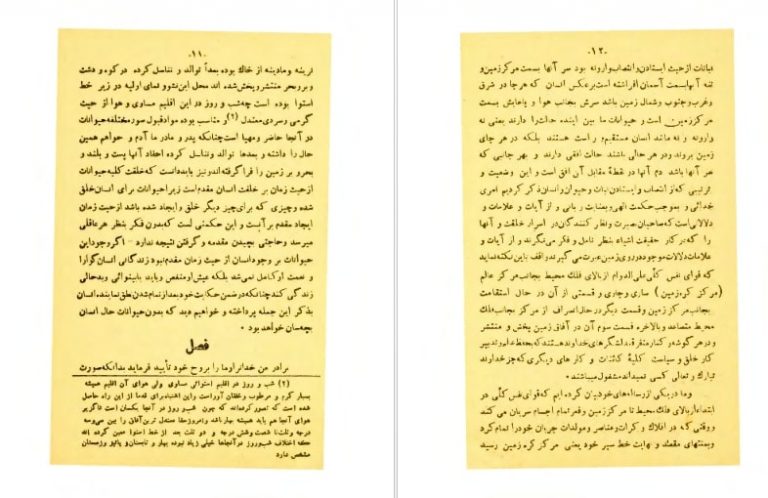 .۱۱.
نرینه و مادینه از خاك بوده بعداً توالد و تناسل کرده در کوه و دشت
و بر و بحر منتشر و پخش شده اند محل این نشوو نمای اولیه در زیر خط
استوا بوده است چه شب و روز در این اقلیم مساوی و هوا از حیث
گرمی و سردی معتدل (۲) و مناسب بوده مواد قبول صور مختلفه حیوانات
در آنجا حاضر و مهیا است چنانکه پدر و مادر ما آدم و حواهم همین
حال را داشته و بعدها توالد و تناسل کرده احفاد آنها پست و بلند و
بحر و بر زمین را فرا گرفته اند و نیز باید دانست که خلقت کلیه حیوانات
از حیث زمان بر خلقت انسان مقدم است زیرا حیوانات برای انسان خلق
شده و چیزی که برای چیز دیگر خلق و ایجاد شده باشد از حیث زمان
ایجاد مقدم بر آنست و این حکمتی است که بدون فکر بنظر هر عاقلی
میرسد و حاجتی بچیدن مقدمه و گرفتن نتیجه ندارد - اگر وجود این
حیوانات بر وجود انسان از حیث زمان مقدم نبود زندگانی انسان گوارا
و نعمت او کامل نمی شد بلکه عیش او منغص و باید بابینوائی و بدحالی
زندگی کند چنانکه در ضمن حکایت خود بعد از تمام شدن نطق نماینده انسان
بذکر این جمله پرداخته و خواهیم دید که بدون حیوانات حال انسان
بچه سان خواهد بود •
فصل
برادر من خدا تو را و ما را بروح خود تأیید فرماید بدانکه صورت
(۲) شب و روز در اقلیم استوائی مساوی ولی هوای آن اقلیم همیشه
بسیار گرم و مرطوب و خفقان آور است و این اشتباه برای قدما از این راه حاصل
شده است که تصور کرده اند که چون شب و روز در آنجا یکسان است ناگزیر
هوای آنجا هم باید همیشه بهار باشد و امروزه جا معتدل ترین آفاق را بین سی و سه
درجه و ثلث تا شصت و شش درجه و دو ثلث بعد از خط استوا معین کرده اند
که اختلاف شب و روز در آنجاها خیلی زیاد نبوده بهار و تابستان و پائیز و زمستان
مشخص دارد
.۱۲.
نباتات از حیث ایستادن و انتصاب وارونه بود سر آنها بسمت مرکز زمین و
تنه آنها بسمت آسمان افراشته است بر عکس انسان که هر جا در شرق
و غرب و جنوب و شمال زمین باشد سرش بجانب هوا و پاهایش بسمت
مرکز زمین است و حیوانات ما بین این دو حالت را دارند یعنی نه
وارونه و نه مانند انسان مستقیم و راست هستند بلکه در هر جای
زمین بروند و در هر حالی باشند حالت افقی دارند و بهر جانبی که
سر آنها باشد دم آنها در نقطه مقابل آن افق است و این وضعیت و
ترتیبی که از انتصاب و ایستادن نبات و حیوان و انسان ذکر کردیم امری
خدائی و بموجب حکمت الهی و بعنایت ربانی و از آیات و علامات و
دلالاتی است که صاحبان عبرت و نظر کنندگان در اسرار خلقت و آنها
را که بر کار حقیقت اشیاء بنظر تأمل و فکر می نگرند و از آیات و
علامات دلالات موجوده در روی زمین عبرت می گیرند واقف باین نکته نماید
که قوای نفس کلّی علی الدوام از بالای فلك محیط بجانب مرکز عالم
(مرکز کره زمین) ساری و جاری و قسمتی از آن در حال استقامت
بجانب مرکز زمین و قسمت دیگر در حال انصراف از مرکز بجانب فلك
محیط متصاعد و بالاخره قسمت سوم آن در آفاق زمین پخش و منتشر
و در هر گوشه و کنار متفرقند لشگرهای خداوند هستند که بحفظ عالم و تدبیر
کار خلق و سیاست کلیۀ کائنات و کار های دیگری که جز خداوند
تبارك و تعالی کسی نمیداند مشغول میباشند •
و ما در یکی از رساله های خود بیان کرده ایم که قوای نفس کلّی در
ابتداء از بالای فلك محیط تا مرکز زمین و قعر تمام اجسام سریان می کند
و وقتی که در افلاك و کرات و عناصر و مولدات جریان خود را تمام کرد
و بمنتهای مقصد و نهایت خط سیر خود یعنی مرکز کره زمین رسید